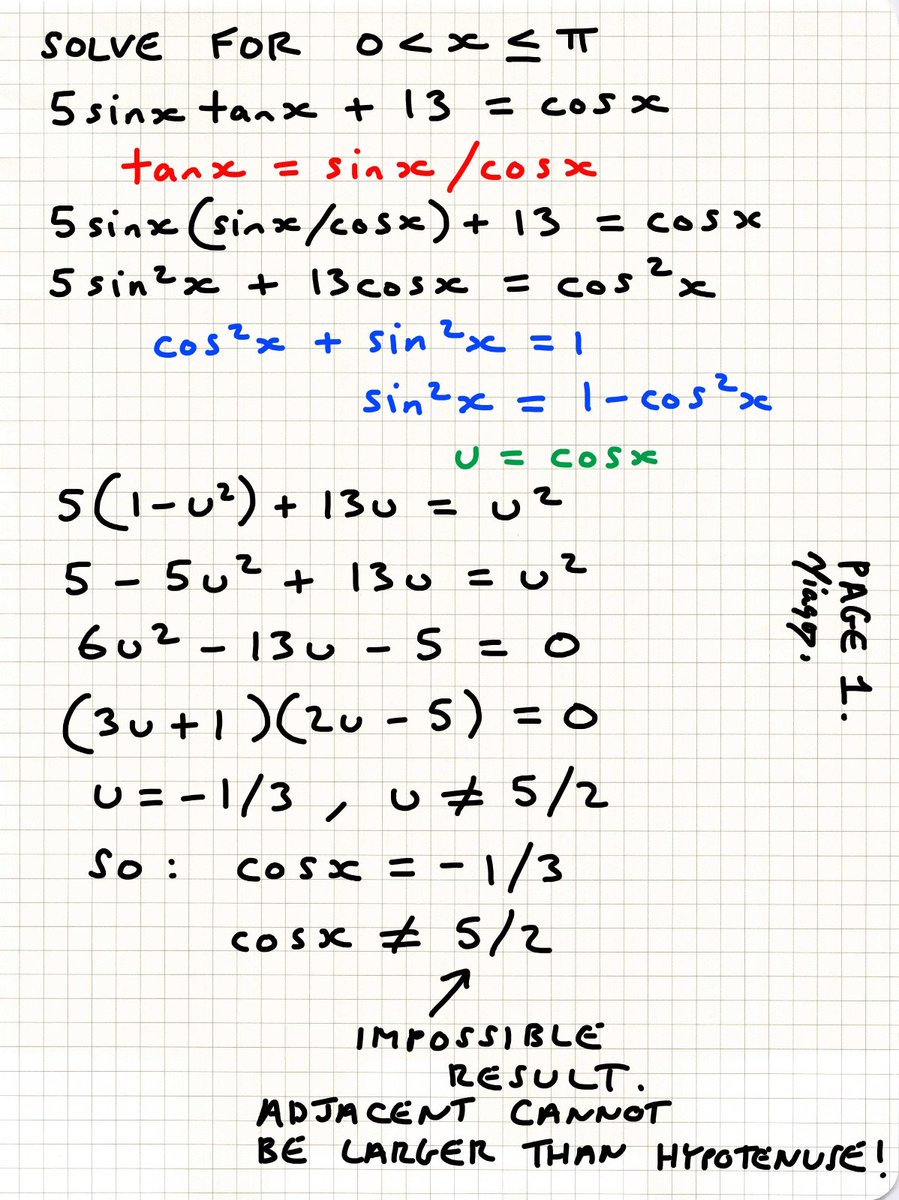 SOLVE FOR 0 < x ≤ π
5 sinx tanx + 13 = cosx
tanx = sinx/cosx
5 sinx(sinx/cosx) + 13 = cosx
5 sin²x + 13cosx = cos²x
cos²x + sin²x = 1
sin²x = 1 - cos²x
u = cosx
5(1-u²) + 13u = u²
5 - 5u² + 13u = u²
6u² - 13u - 5 = 0
(3u+1)(2u-5) = 0
u = -1/3 , u ≠ 5/2
So : cosx = -1/3
cosx ≠ 5/2
IMPOSSIBLE
RESULT.
ADJACENT CANNOT
BE LARGER THAN HYPOTENUSE!
PAGE 1.